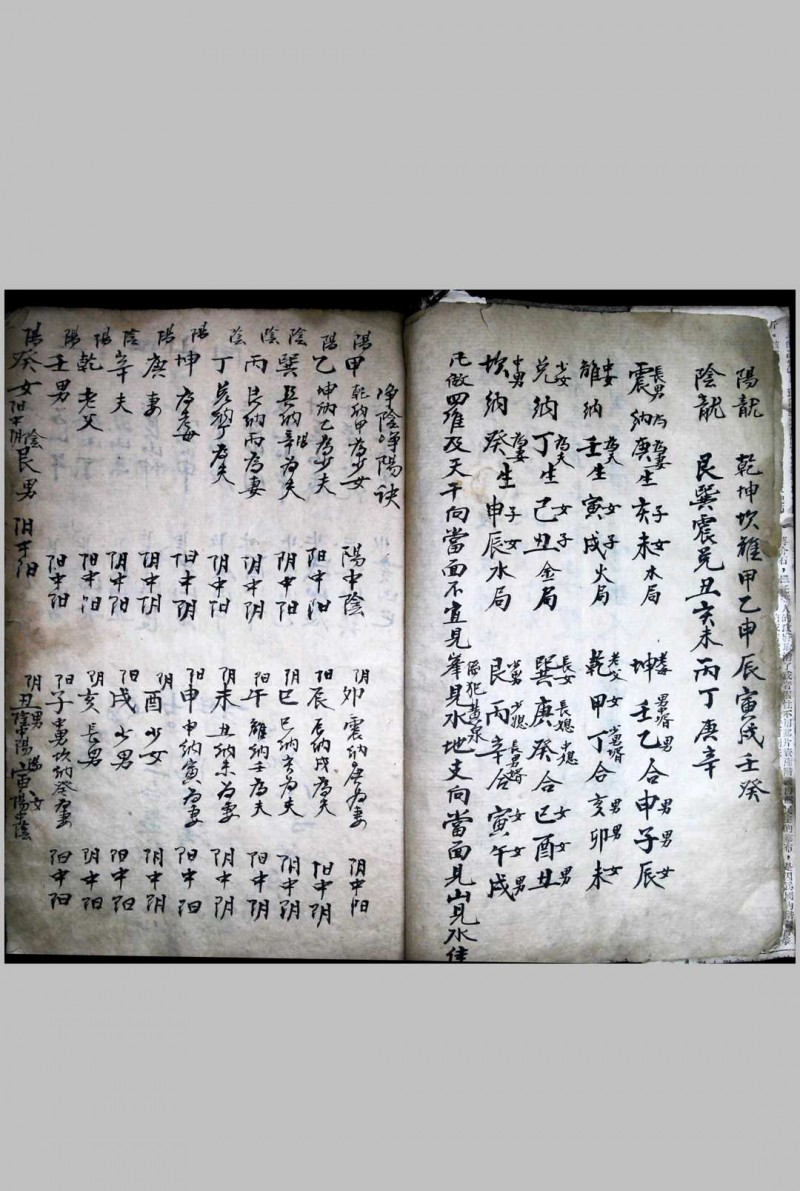 陽龍　乾坤坎離甲乙申辰寅戌壬癸
陰龍　艮巽震兌丑亥未丙丁庚辛
震長男納庚為妻生亥子未女木局　坤壬乙合申男子男辰男
離中女納壬為夫生寅女戌子火局　乾老父甲丁合亥男卯男未女
兌少女納丁為夫生己女丑子金局　巽長女庚癸合巳女酉女丑男
坎中男納癸為妻生申子辰女水局　艮丙辛合寅女午女戌男
凡做四維及天干向當面不宜見峯見水地支向當面見山見水佳
淨陰淨陽訣
陽甲　乾納甲為少女　陽中陰
陽乙　坤納乙為少夫　阳中阳
陰巽　巽納辛為夫　阴中阳
陰丙　艮納丙為妻　阴中阴
陰丁　兌納丁為夫　阴中阳
陽坤　為老母　阳中阴
陽庚　妻　阴中阴
陰辛　夫　阴中阳
陽乾　老父　阳中阳
陽壬　男　阳中阳
陽癸　女　阳中阴　陰艮　男　阳中阳
阴卯　震納庚為妻　阴中阳
阳辰　辰納戌為夫　阳中阴
阴巳　巳納亥為夫　阴中阴
阳午　離納壬為夫　阳中阴
阴未　丑納未為妻　阴中阴
阳申　申納寅為妻　阳中阳
阴酉　少女　阴中阴
阳戌　少男　阳中阳
阴亥　長男　阴中阳
阳子　中男坎納癸為妻　阳中阳
阴丑　男　陰中陽　寅　女　陽中陰